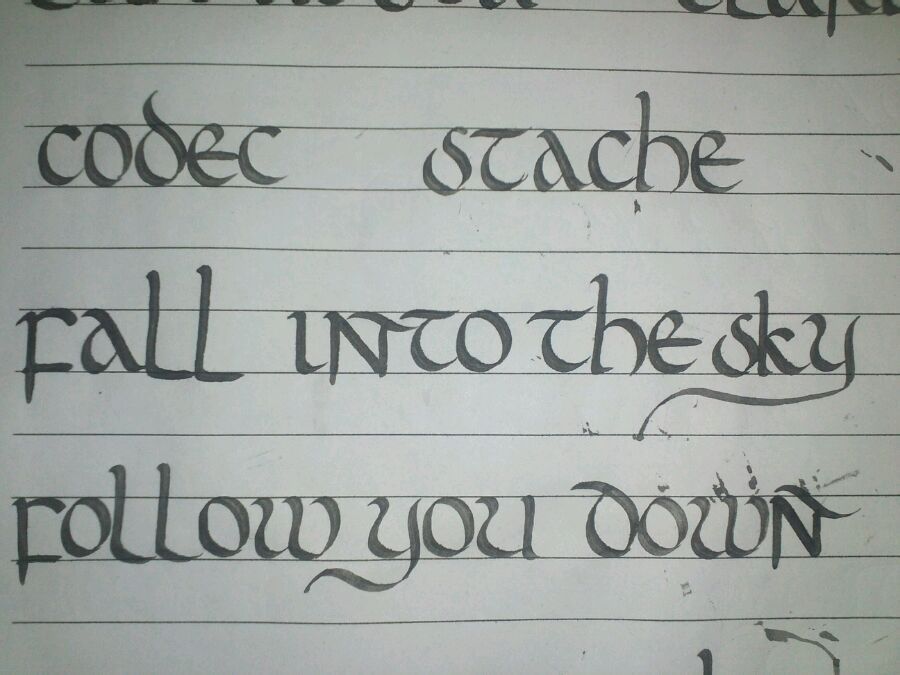 codec stache
fall into the sky
follow you down